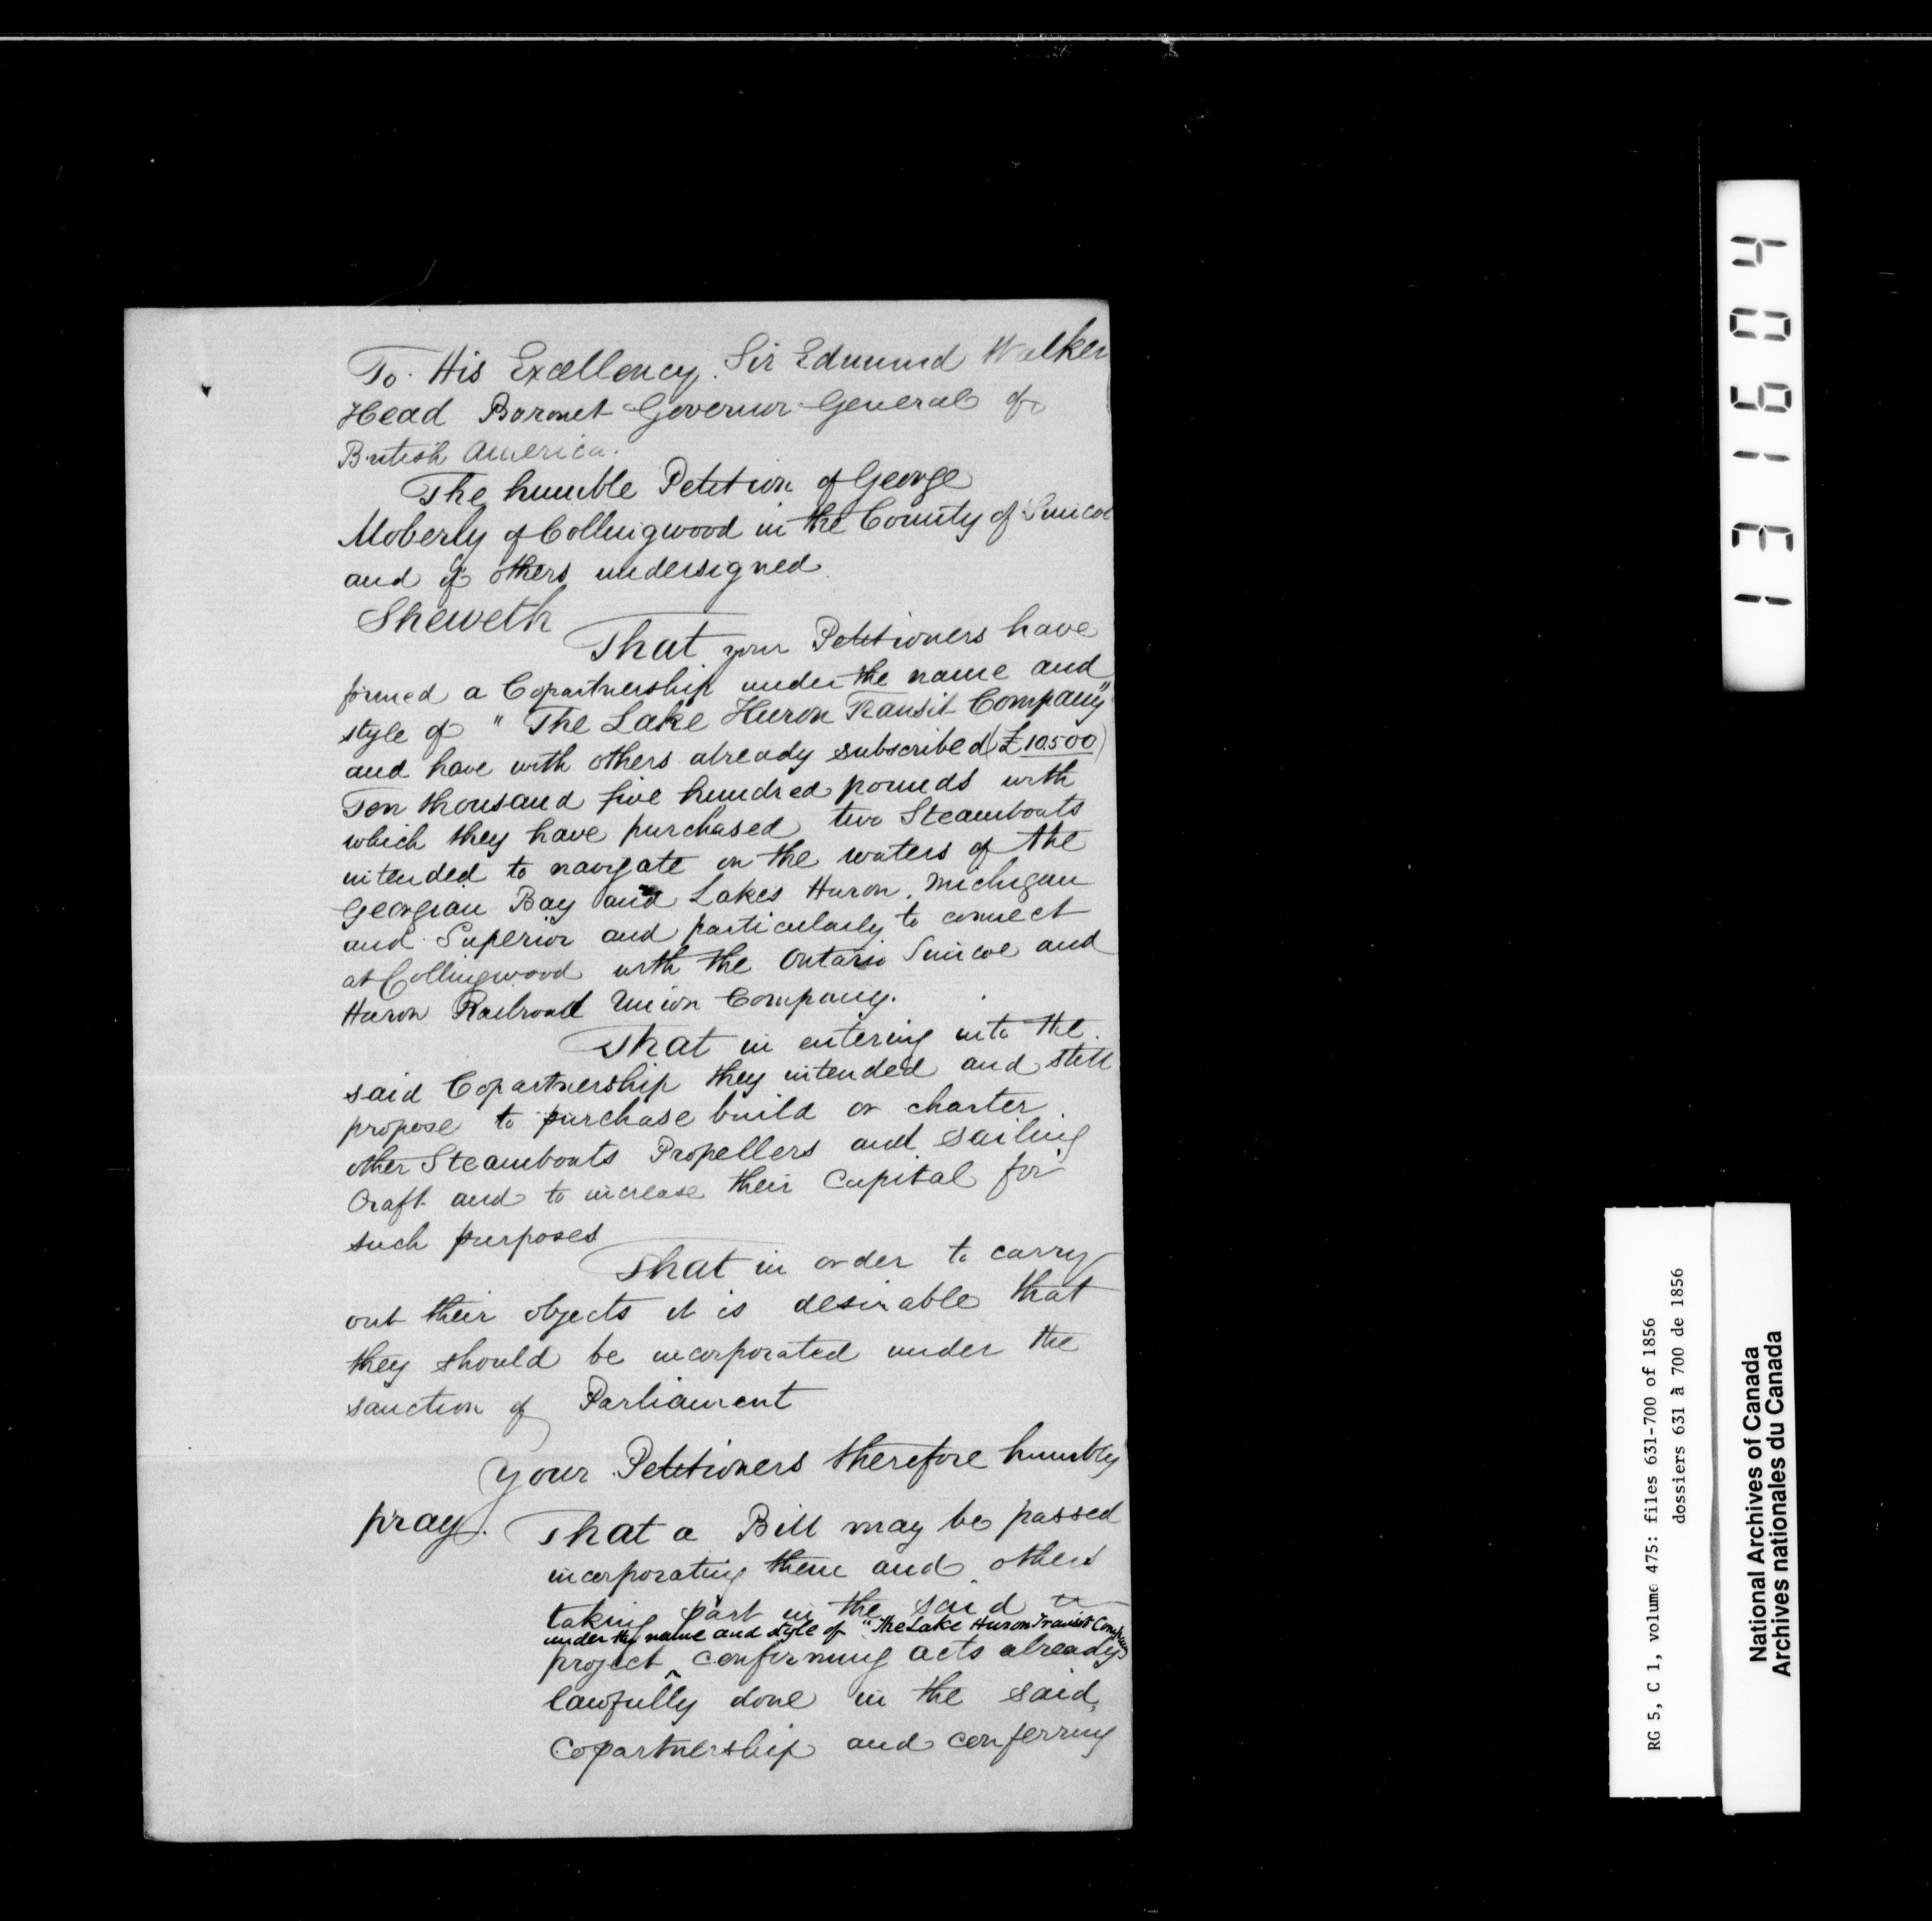 To His Excellency Sir Edmund Walker
Head Baronet Governor General of
British America.
The humble Petition of George
Moberly of Collingwood in the County of Simcoe
and of others undersigned
Sheweth
That your Petitioners have
formed a Copartnership under the name and
style of "The Lake Huron Transit Company"
and have with others already subscribed (£10.500)
Ten thousand five hundred pounds with
which they have purchased two Steamboats
intended to navigate on the waters of the
Georgian Bay and Lakes Huron, Michigan
and Superior and particularly to connect
at Collingwood with the Ontario Simcoe and
Huron Railroad Union Company.
That in entering into the
said Copartnership they intended and still
propose to purchase build or charter
other Steamboats Propellers and sailing
Craft and to increase their Capital for
such purposes
That in order to carry
out their objects it is desirable that
they should be incorporated under the
sanction of Parliament
Your Petitioners therefore humbly
pray. That a Bill may be passed
incorporating them and others
taking part in the said
under the name and style of "The Lake Huron Transit Company"
project ^ confirming acts already
lawfully done in the said
Copartnership and conferring
131604
RG 5, C 1, volume 475: files 631-700 of 1856
dossiers 631 à 700 de 1856
National Archives of Canada
Archives nationales du Canada